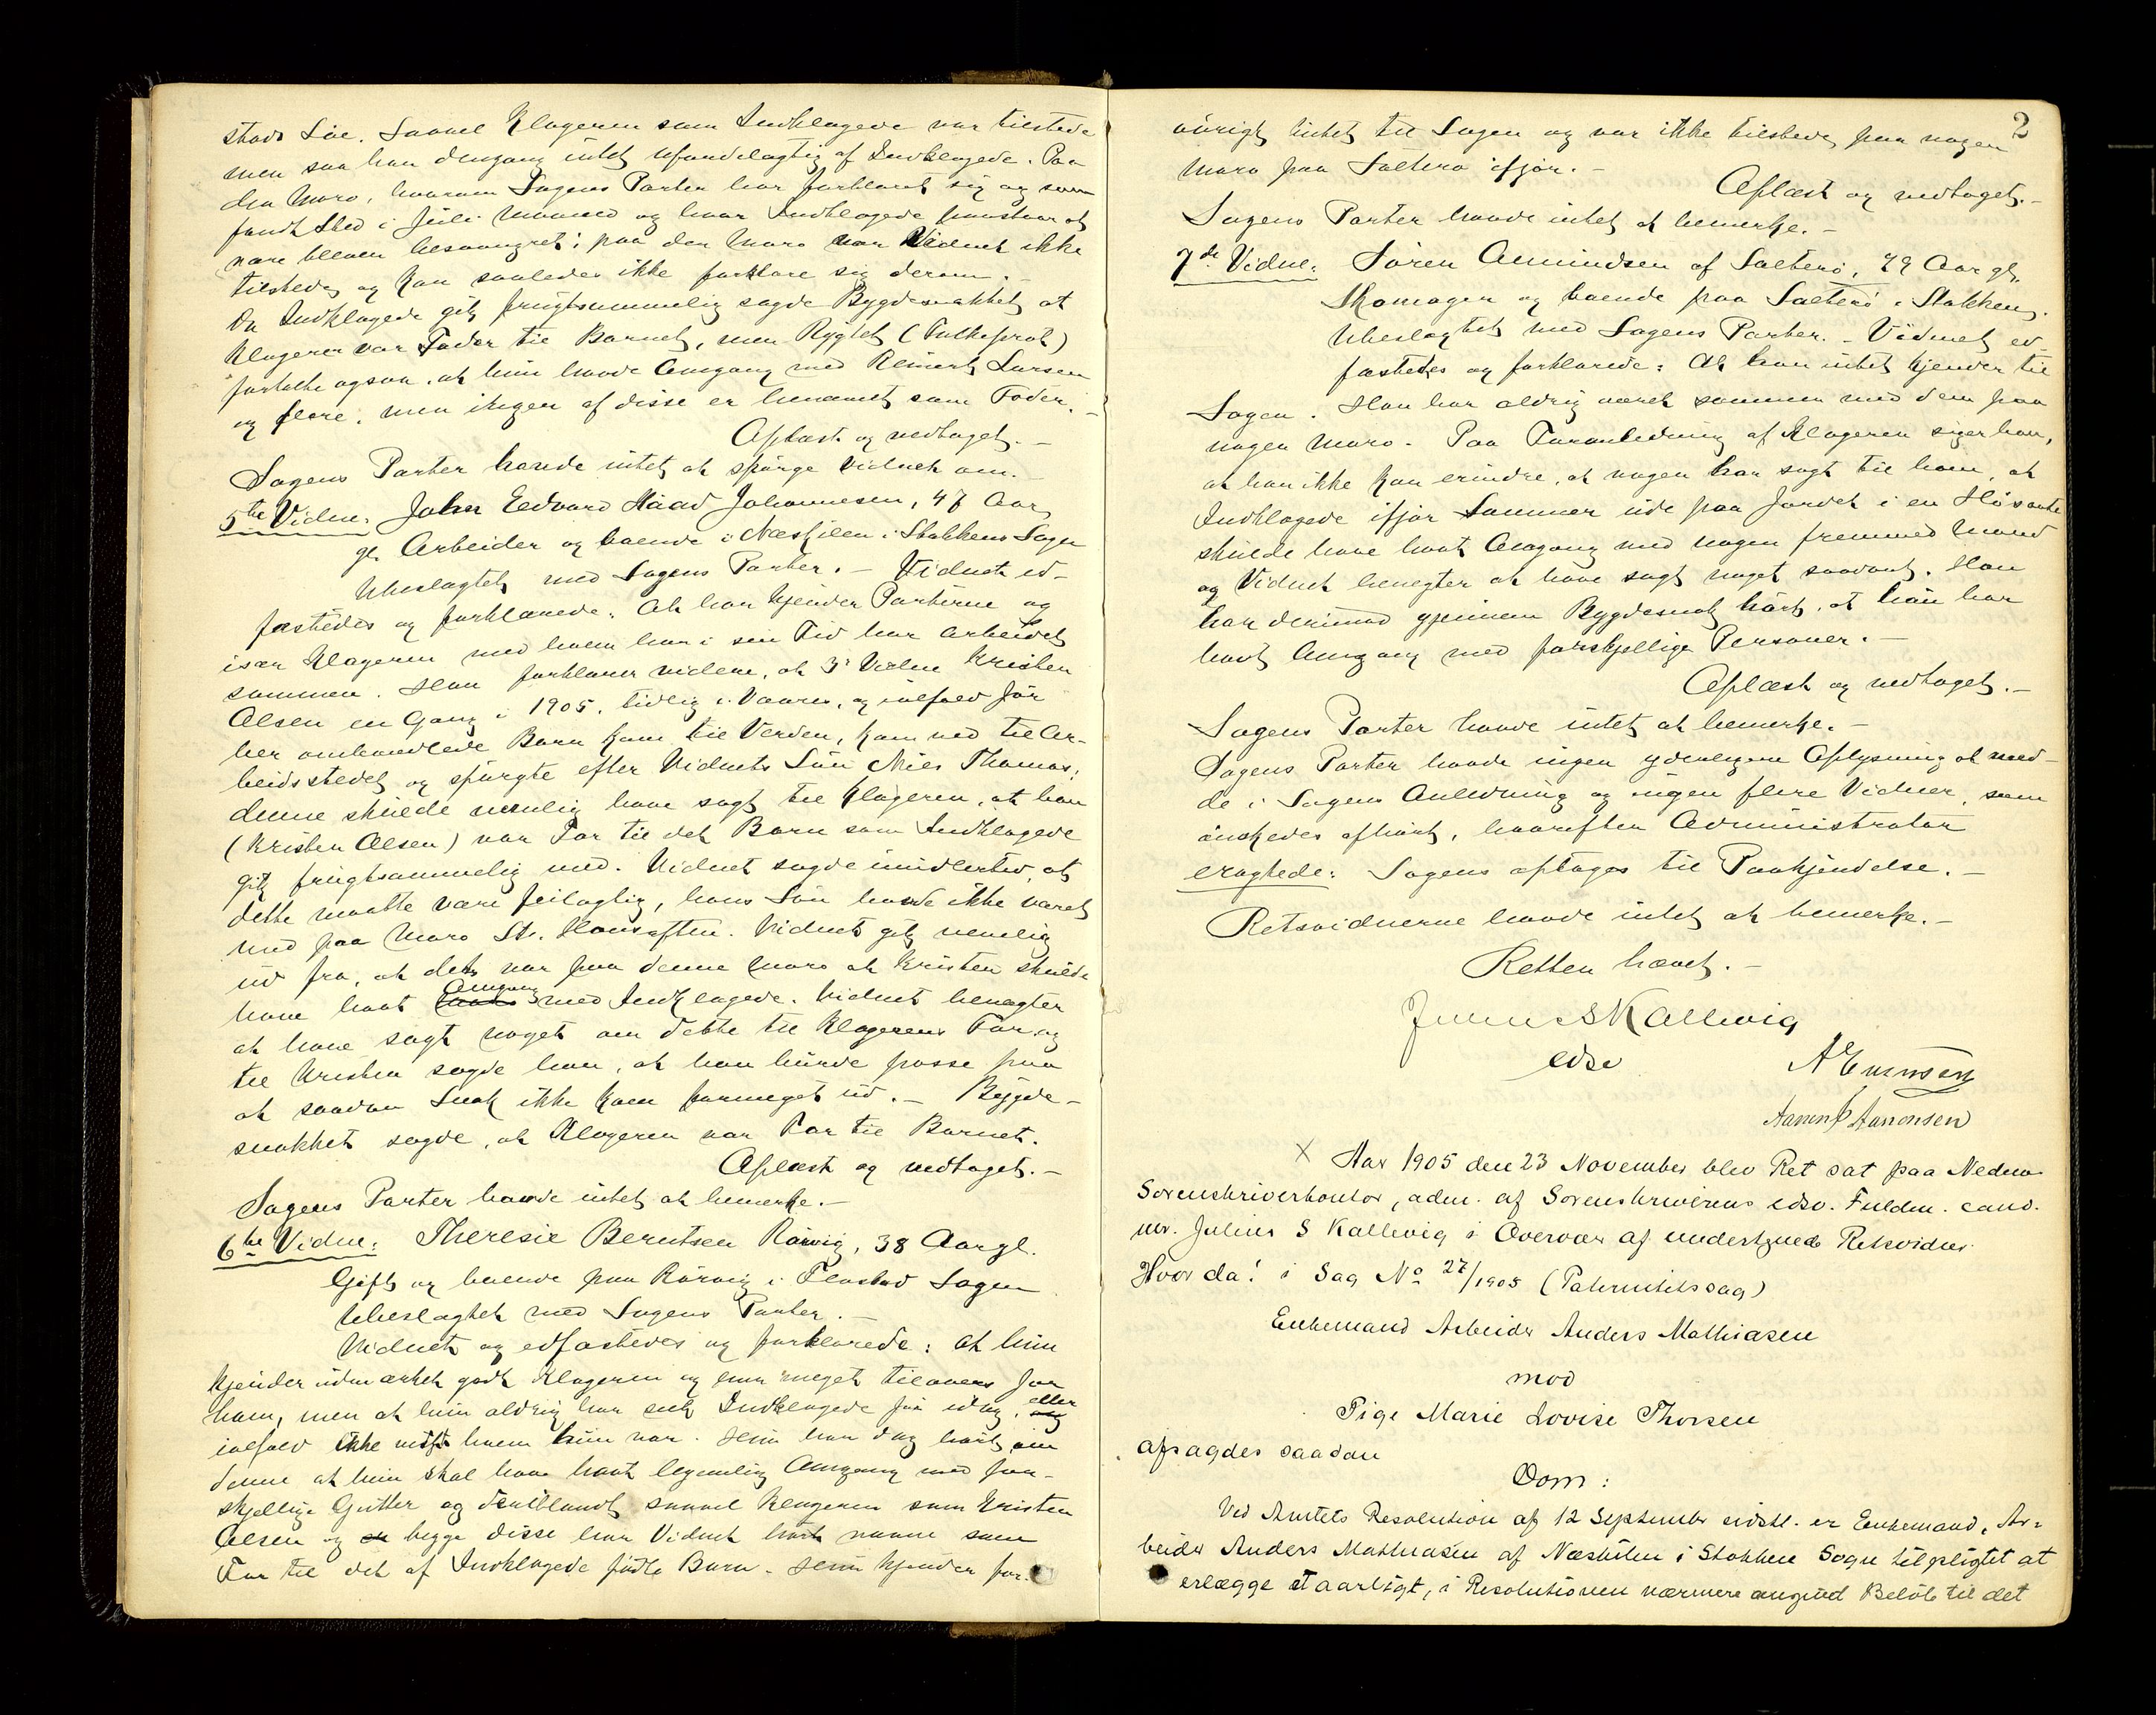 stads Sæ. Saavel Klageren som Indklagede var tilstede
men saa han dengang intet ufordelagtig af Indklagede. Paa
den Moro, hvorom Sagens Parter har forklaret sig og som
fandt Sted i Juli Maaned og hvor Indklagede paastaar at
være bleven besvangret; paa den Moro var Vidnet ikke
tilstede og kan saaledes ikke forklare sig derom. –
Da Indklagede gik frugtsommelig sagde Bygdesnakket at
Klageren var Fader til Barnet, men Rygtet (Folkeprat)
fortalte ogsaa, at hun havde Omgang med Reinert Larsen
og flere, men ingen af disse er benævnt som Fader. –
Oplæst og vedtaget. –
Sagens Parter havde intet at spørge Vidnet om. –
5te Vidne: John Edvard Haad Johannesen, 47 Aar
gl. Arbeider og boende i Næskilen i Stokkens Sogn
Ubeslægtet med Sagens Parter. – Vidnet ed-
fæstedes og forklarede: At han kjender Parterne og
især Klageren med hvem han i sin Tid har arbeidet
sammen. Han forklarer videre, at 3' Vidne Kristen
Olsen en Gang i 1905, tidlig i Vaares, og ialfald før
her omhandlede Barn kom til Verden, kom ned til Ar-
beidsstedet og spurgte efter Vidnets Søn Nils Thomas;
denne skulde nemlig have sagt til Klageren, at han
(Kristen Olsen) var Far til det Barn som Indklagede
gik frugtsommelig med. Vidnet sagde imidlertid, at
dette maatte være feilagtig, hans Søn havde ikke været
med paa Moro St. Hansaften. Vidnet gik nemlig
ud fra, at det var paa denne Moro at Kristen skulde
have havt Omgang med Indklagede. Vidnet benægter
at have sagt noget om dette til Klagerens Far og
til Kristen sagde han, at han burde passe paa
at saadan Snak ikke kom formeget ud. – Bygde-
snakket sagde, at Klageren var Far til Barnet.
Oplæst og vedtaget. –
Sagens Parter havde intet at bemerke. –
6te Vidne: Theresie Berntsen Rørvig, 38 Aar gl.
Gift og boende paa Rørvig i Flostad Sogn
Ubeslægtet med Sagens Parter. –
Vidnet og edfæstedes og forklarede: at hun
kjender udmærket godt Klageren og har meget tilovers for
ham, men at hun aldrig har seet Indklagede før idag, eller
ialfald ikke vidst hvem hun var. Hun har dog hørt om
denne at hun skal have havt legemlig Omgang med for-
skjellige Gutter og deriblandt saavel Klageren som Kristen
Olsen og begge disse har Vidnet hørt nævne som
Far til det af Indklagede fødte Barn. Hun kjender for-
2
øvrigt intet til Sagen og var ikke tilstede paa nogen
Moro paa Salterø ifjor. –
Oplæst og vedtaget. –
Sagens Parter havde intet at bemerke. –
7de Vidne: Søren Amundsen af Salterø, 79 Aar gl.
Skomager og boende paa Salterø i Stokken.
Ubeslægtet med Sagens Parter. – Vidnet ed-
fæstedes og forklarede: At han intet kjender til
Sagen. Han har aldrig været sammen med dem paa
nogen Moro. Paa Foranledning af Klageren siger han,
at han ikke kan erindre, at nogen har sagt til ham, at
Indklagede ifjor Sommer ude paa Jordet i en Høsaate
skulde have havt Omgang med nogen fremmed Mand
og Vidnet benegter at have sagt noget saadant. Han
har derimod gjennem Bygdesnak hørt, at hun har
havt Omgang med forskjellige Personer. –
Oplæst og vedtaget. –
Sagens Parter havde intet at bemerke. –
Sagens Parter havde ingen yderligere Oplysning at med-
dele i Sagens Anledning og ingen flere Vidner, som
ønskedes afhørt, hvorefter Administrator
eragtede: Sagens optages til Paakjendelse. –
Retsvidnerne havde intet at bemerke. –
Retten hævet. –
Julius S Kallevig
edsv A Evensen
Aanon Aanonsen
X Aar 1905 den 23 November blev Ret sat paa Nedenes
Sorenskriverkontor, adm. af Sorenskriverens edsv. Fuldm. cand.
jur. Julius S Kallevig i Overvær af undertegnede Retsvidner
Hvor da! i Sag No 27/1905 (Paternitetssag)
Enkemand Arbeider Anders Mathiasen
mod
Pige Marie Lovise Thorsen
afsagdes saadan
Dom:
Ved Amtets Resolution af 12 September sidstl. er Enkemand, Ar-
beider Anders Mathiasen af Næskilen i Stokken Sogn tilpligtet at
erlægge et aarligt, i Resolutionen nærmere angivet Beløb til det